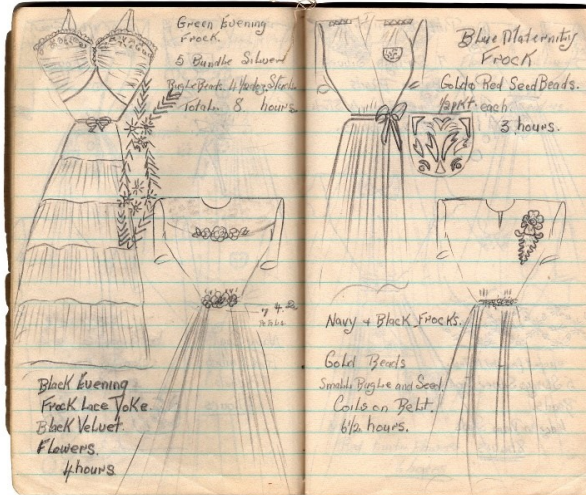 Green Evening
Frock
5 Bundle Silver
Bugle Beads.
Total 8. hours.
Black Evening
Frock Lace Yoke.
Black Velvet
Flowers.
4 hours
Blue Maternity
Frock
Gold & Red Seed Beads.
1/2 Pkt. each
3 hours.
Navy & Black Frocks.
Gold Beads
Small Bugle and Seed.
Coils on Belt.
6 1/2 hours.